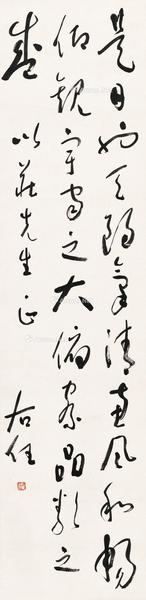 是日也天朗氣清惠風和暢
仰觀宇宙之大俯察品類之
盛
以莊先生正
右任